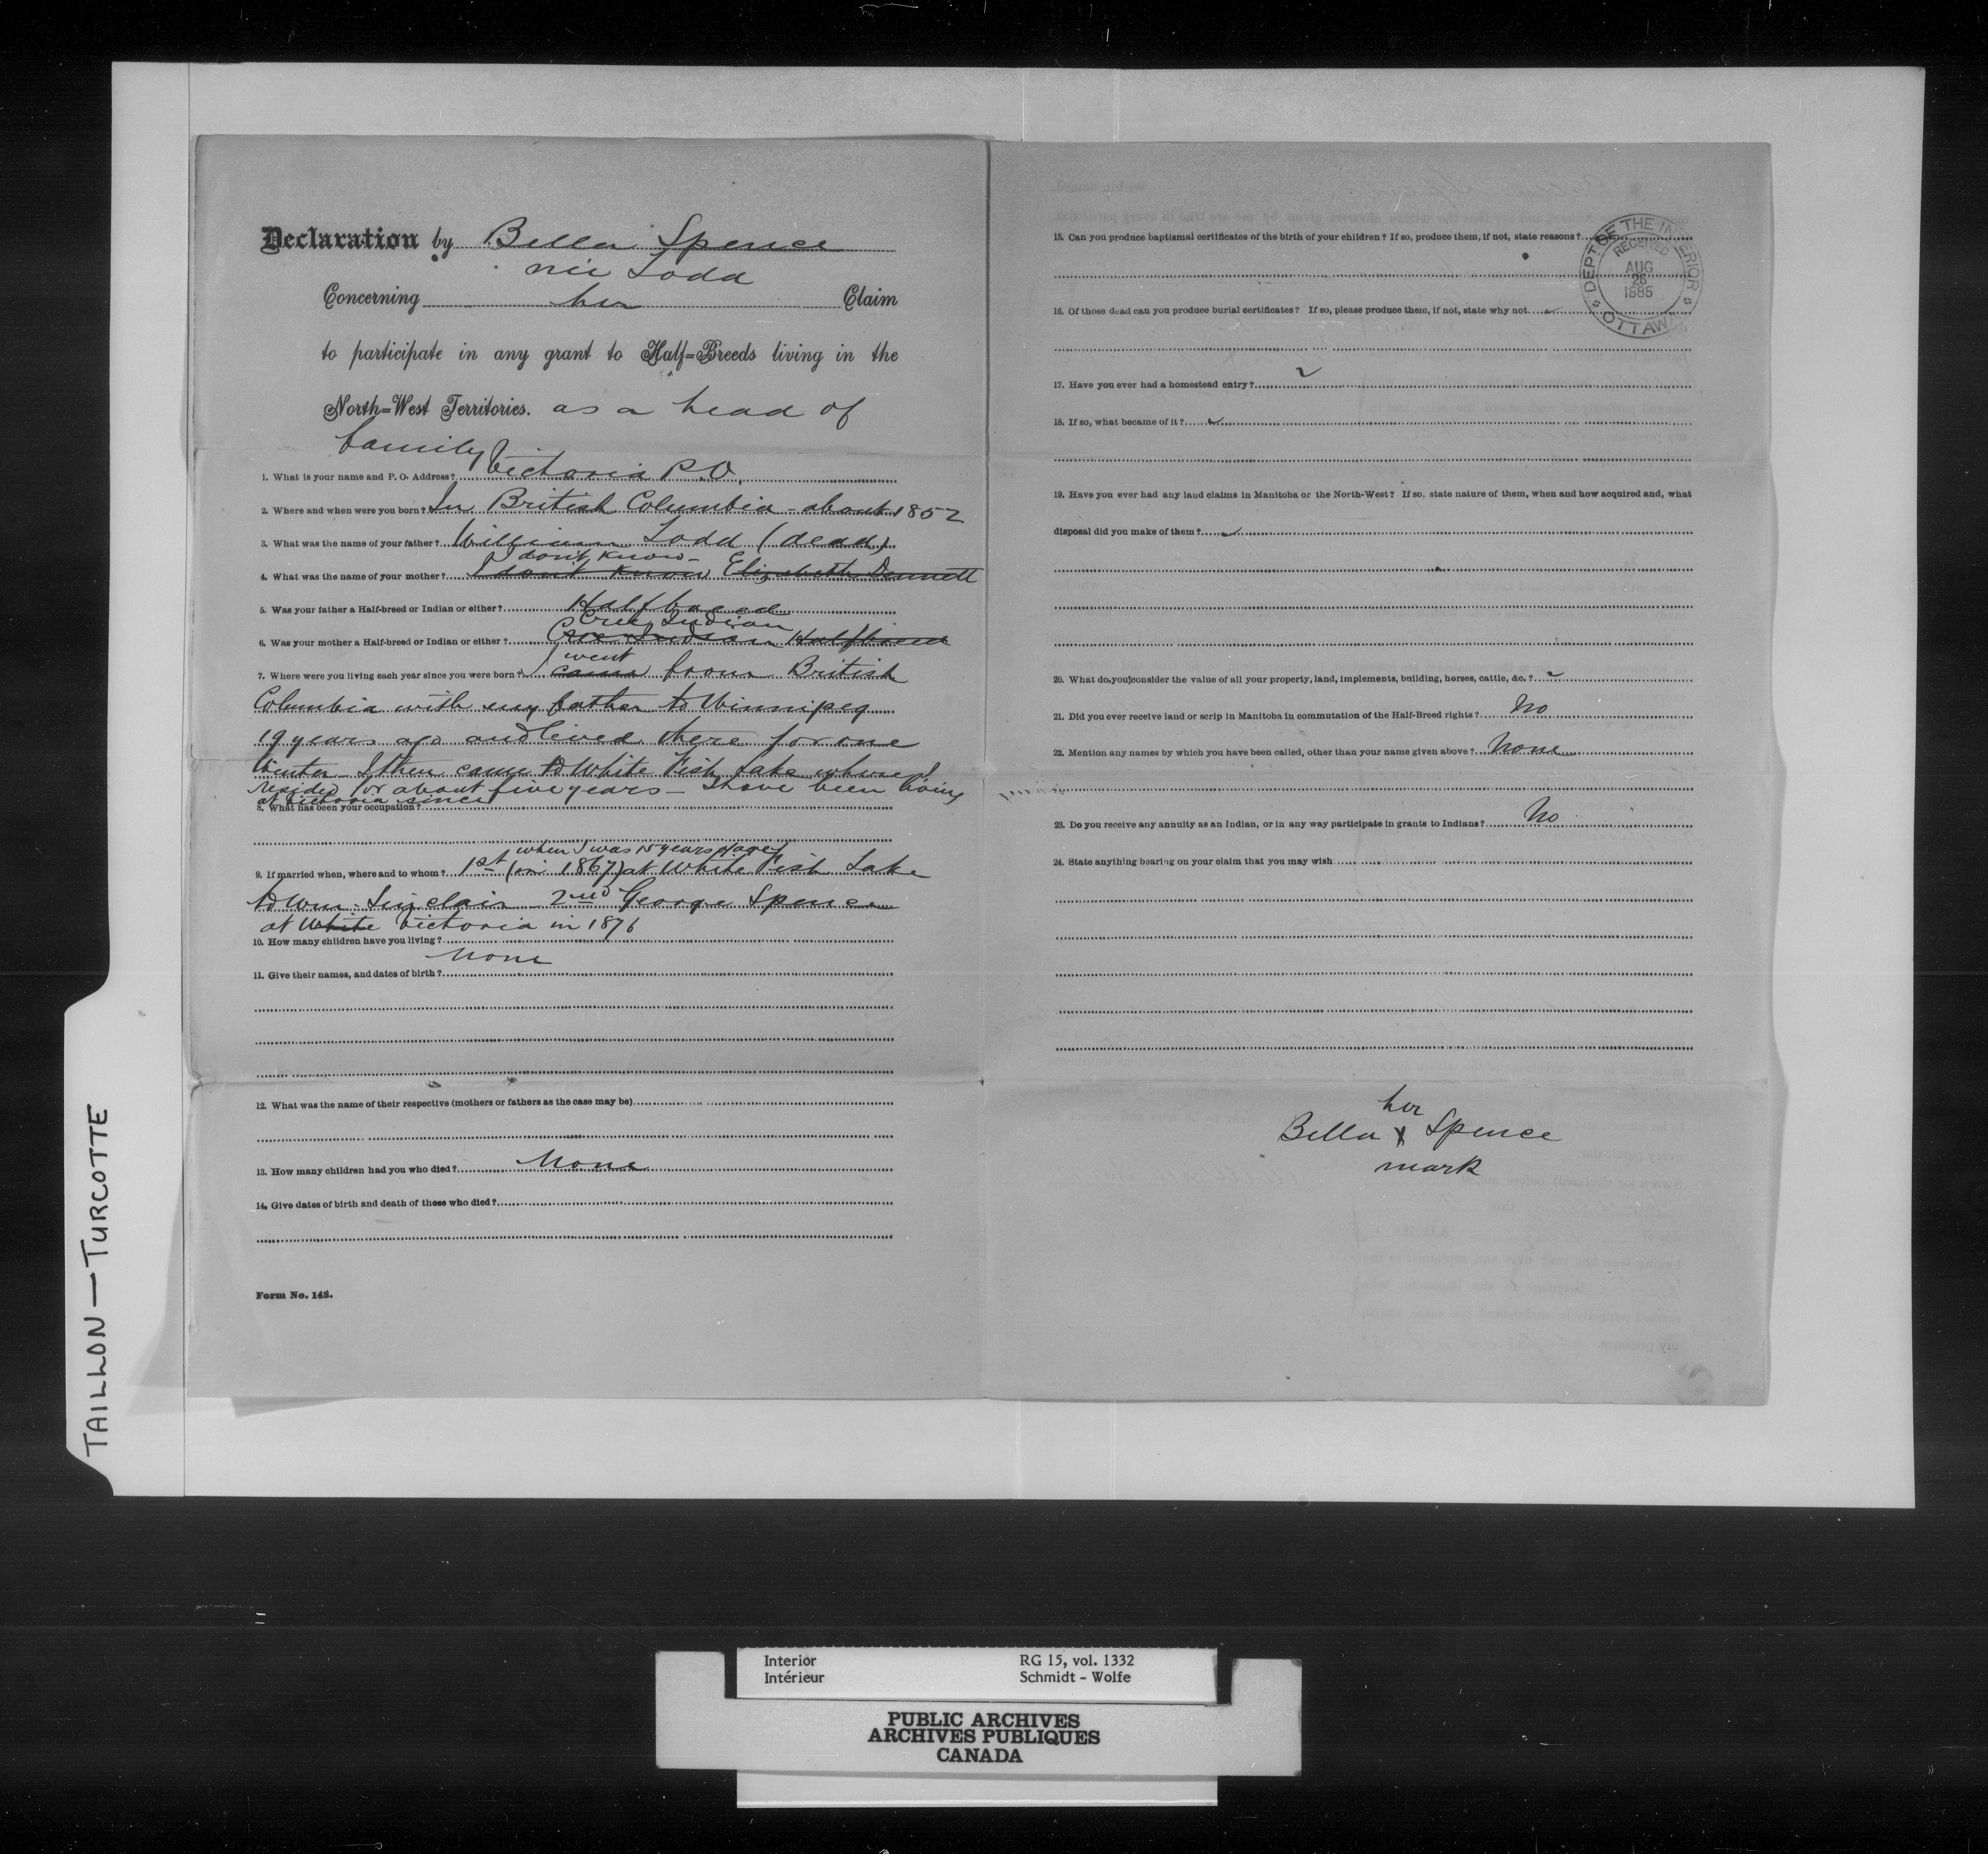 Declaration by Bella Spence
née Todd
Concerning her Claim
to participate in any grant to Half=Breeds living in the
North=West Territories. as a head of
family
1. What is your name and P. O. Address? Victoria P.O.
2. Where and when were you born? In British Columbia - about 1852
3. What was the name of your father? William Todd (dead)
I don't know -
4. What was the name of your mother? I don't know Elizabeth Dennett
5. Was your father a Half-breed or Indian or either? Halfbreed
Cree Indian
6. Was your mother a Half-breed or Indian or either? Cree Indian Halfbreed
went
7. Where were you living each year since you were born? I came from British
Columbia with my father to Winnipeg
19 years ago and lived there for one
Winter - I then came to White Fish Lake where I
resided for about five years - I have been living
at Victoria since
8. What has been your occupation?
when I was 15 years of age
9. If married when, where and to whom? 1st (in 1867) at White Fish Lake
to Wm. Sinclair - 2nd George Spence
at White Victoria in 1876
10. How many children have you living?
None
11. Give their names, and dates of birth?
12. What was the name of their respective (mothers or fathers as the case may be)
13. How many children had you who died? None
14. Give dates of birth and death of those who died?
Form No. 143.
15. Can you produce baptismal certificates of the birth of your children? If so, produce them, if not, state reasons?
16. Of those dead can you produce burial certificates? If so, please produce them, if not, state why not
17. Have you ever had a homestead entry?
18. If so, what became of it?
19. Have you ever had any land claims in Manitoba or the North-West? If so, state nature of them, when and how acquired and, what
disposal did you make of them?
20. What do you consider the value of all your property, land, implements, building, horses, cattle, &c.?
21. Did you ever receive land or scrip in Manitoba in commutation of the Half-Breed rights? No
22. Mention any names by which you have been called, other than your name given above? None
23. Do you receive any annuity as an Indian, or in any way participate in grants to Indians? No
24. State anything bearing on your claim that you may wish
her
Bella X Spence
mark
DEPT OF THE INTERIOR
RECEIVED
AUG
26
1885
OTTAWA
TAILLON — TURCOTTE
Interior RG 15, vol. 1332
Intérieur Schmidt - Wolfe
PUBLIC ARCHIVES
ARCHIVES PUBLIQUES
CANADA